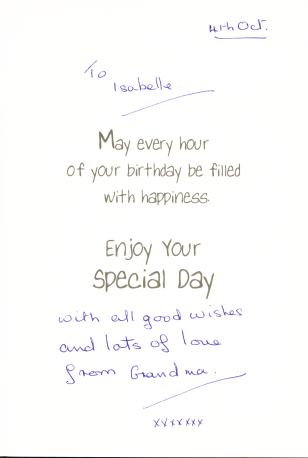 4th Oct.
To
Isabelle
May every hour
of your birthday be filled
with happiness.
Enjoy Your
Special Day
with all good wishes
and lots of love
from Grandma.
xxxxxxx